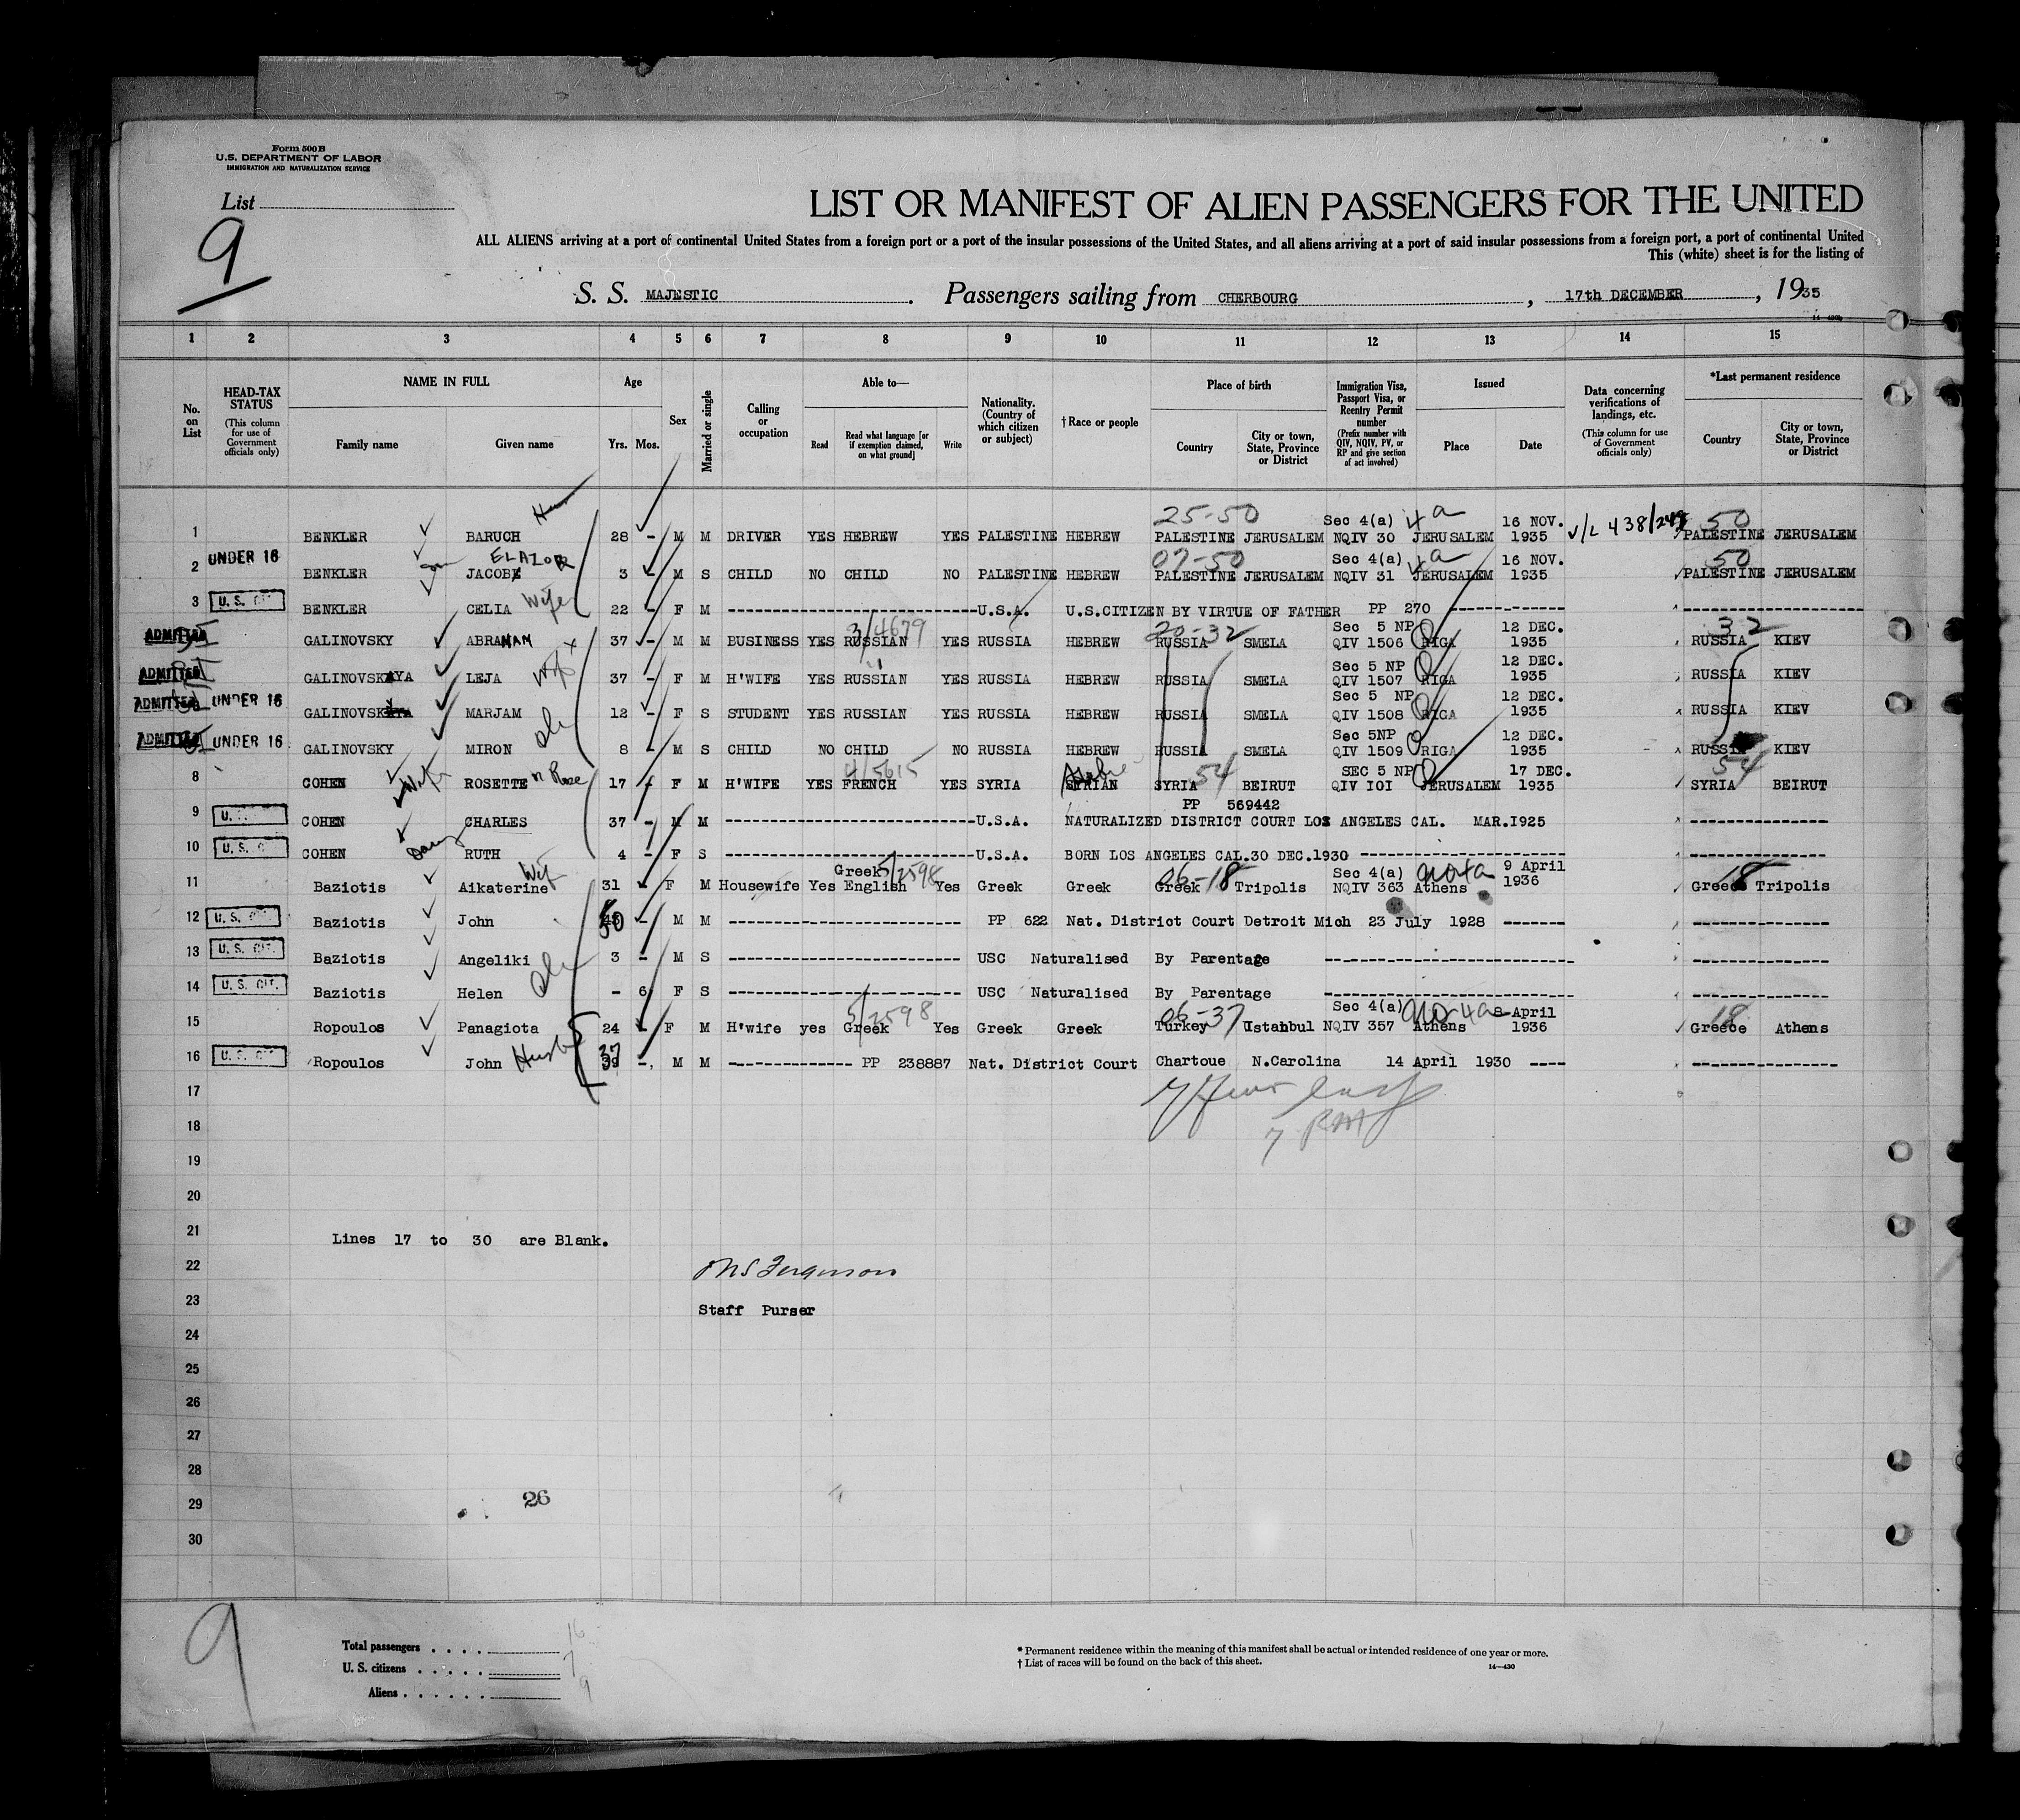 Form 500B
U.S. DEPARTMENT OF LABOR
IMMIGRATION AND NATURALIZATION SERVICE
List
9
LIST OR MANIFEST OF ALIEN PASSENGERS FOR THE UNITED
ALL ALIENS arriving at a port of continental United States from a foreign port or a port of the insular possessions of the United States, and all aliens arriving at a port of said insular possessions from a foreign port, a port of continental United
This (white) sheet is for the listing of
S. S. MAJESTIC . Passengers sailing from CHERBOURG , 17th DECEMBER , 1935
1 2 3 4 5 6 7 8 9 10 11 12 13 14 15
No. on List
HEAD-TAX STATUS (This column for use of Government officials only)
NAME IN FULL Family name Given name
Age Yrs. Mos.
Sex
Married or single
Calling or occupation
Able to— Read Read what language [or if exemption claimed, on what ground] Write
Nationality. (Country of which citizen or subject)
†Race or people
Place of birth Country City or town, State, Province or District
Immigration Visa, Passport Visa, or Reentry Permit number (Prefix number with QIV, NQIV, PV, or RP and give section of act involved)
Issued Place Date
Data concerning verifications of landings, etc. (This column for use of Government officials only)
*Last permanent residence Country City or town, State, Province or District
25-50 Sec 4(a) 4a 16 NOV. 50
1 BENKLER BARUCH 28 - M M DRIVER YES HEBREW YES PALESTINE HEBREW PALESTINE JERUSALEM NQIV 30 JERUSALEM 1935 PALESTINE JERUSALEM
UNDER 16 ELAZOR 07-50 Sec 4(a) 4a 16 NOV. 50
2 BENKLER JACOB 3 - M S CHILD NO CHILD NO PALESTINE HEBREW PALESTINE JERUSALEM NQIV 31 JERUSALEM 1935 PALESTINE JERUSALEM
3 U.S. CIT. BENKLER CELIA Wife 22 - F M U.S.A. U.S.CITIZEN BY VIRTUE OF FATHER PP 270
3/4679 20-32 Sec 5 NP 12 DEC. 32
ADMITTED GALINOVSKY ABRAHAM 37 - M M BUSINESS YES RUSSIAN YES RUSSIA HEBREW RUSSIA SMELA QIV 1506 RIGA 1935 RUSSIA KIEV
Sec 5 NP 12 DEC.
ADMITTED GALINOVSKAYA LEJA Wife 37 - F M H'WIFE YES RUSSIAN YES RUSSIA HEBREW RUSSIA SMELA QIV 1507 RIGA 1935 RUSSIA KIEV
Sec 5 NP 12 DEC.
ADMITTED UNDER 16 GALINOVSKAYA MARJAM 12 - F S STUDENT YES RUSSIAN YES RUSSIA HEBREW RUSSIA SMELA QIV 1508 RIGA 1935 RUSSIA KIEV
Sec 5NP 12 DEC.
ADMITTED UNDER 16 GALINOVSKY MIRON 8 - M S CHILD NO CHILD NO RUSSIA HEBREW RUSSIA SMELA QIV 1509 RIGA 1935 RUSSIA KIEV
4/5615 54 SEC 5 NP 17 DEC. 54
8 COHEN Wife ROSETTE 17 - F M H'WIFE YES FRENCH YES SYRIA SYRIAN SYRIA BEIRUT QIV IOI JERUSALEM 1935 SYRIA BEIRUT
PP 569442
9 COHEN CHARLES 37 - M M U.S.A. NATURALIZED DISTRICT COURT LOS ANGELES CAL. MAR.I925
10 U.S. C COHEN RUTH 4 - F S U.S.A. BORN LOS ANGELES CAL.30 DEC.1930
Wife Greek 5/2598 06-18 Sec 4(a) 9 April 18
11 Baziotis Aikaterine 31 F M Housewife Yes English Yes Greek Greek Greek Tripolis NQIV 363 Athens 1936 Greece Tripolis
12 U.S. CIT. Baziotis John 50 - M M PP 622 Nat. District Court Detroit Mich 23 July 1928
13 U.S. CIT. Baziotis Angeliki 3 - M S USC Naturalised By Parentage
14 U.S. CIT. Baziotis Helen - 6 F S USC Naturalised By Parentage
5/2598 06-37 Sec 4(a) 8 April 18
15 Ropoulos Panagiota 24 - F M H'wife yes Greek Yes Greek Greek Turkey Istanbul NQIV 357 Athens 1936 Greece Athens
16 U.S. CIT. Ropoulos John Husb 37 -, M M PP 238887 Nat. District Court Chartoue N.Carolina 14 April 1930
17
18
19
20
21 Lines 17 to 30 are Blank.
22
23 Staff Purser
24
25
26
27
28
29 26
30
9
Total passengers 16
U. S. citizens 7
Aliens 9
* Permanent residence within the meaning of this manifest shall be actual or intended residence of one year or more.
† List of races will be found on the back of this sheet.
14—430